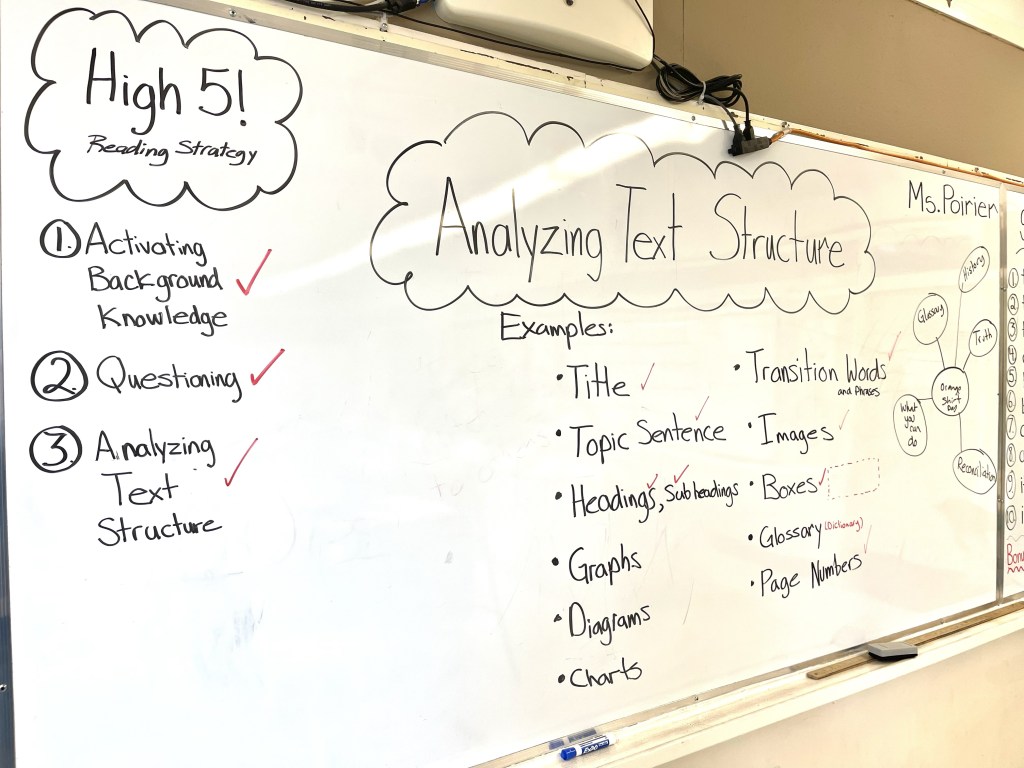 High 5!
Reading Strategy
1. Activating
Background
Knowledge
2. Questioning
3 Analyzing
Text
Structure
Analyzing Text Structure
Examples:
• Title
• Topic Sentence
• Headings, Subheadings
• Graphs
• Diagrams
• Charts
• Transition Words
and Phrases
• Images
• Boxes
• Glossary (Dictionary)
• Page Numbers
Ms. Poirier
History
Glossary
Truth
Orange
Shirt
Day
What
you
can
do
Reconciliation
1
2
3
4
5
6
7
8
9
10
EXPO